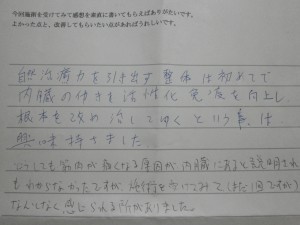 今回施術を受けてみて感想を率直に書いてもらえばありがたいです。
よかった点と、改善してもらいたい点があればうれしいです。
自然治癒力を引き出す整体は初めてで
内臓の働きを活性化免疫を向上し、
根本を改め治してゆくという事は
興味持ちました
どうしても筋肉が固くなる原因が、内臓にあると説明され
もわからなかったですが、施術を受けてみて(まだ1回ですが)
なんとなく感じられる所がありました。